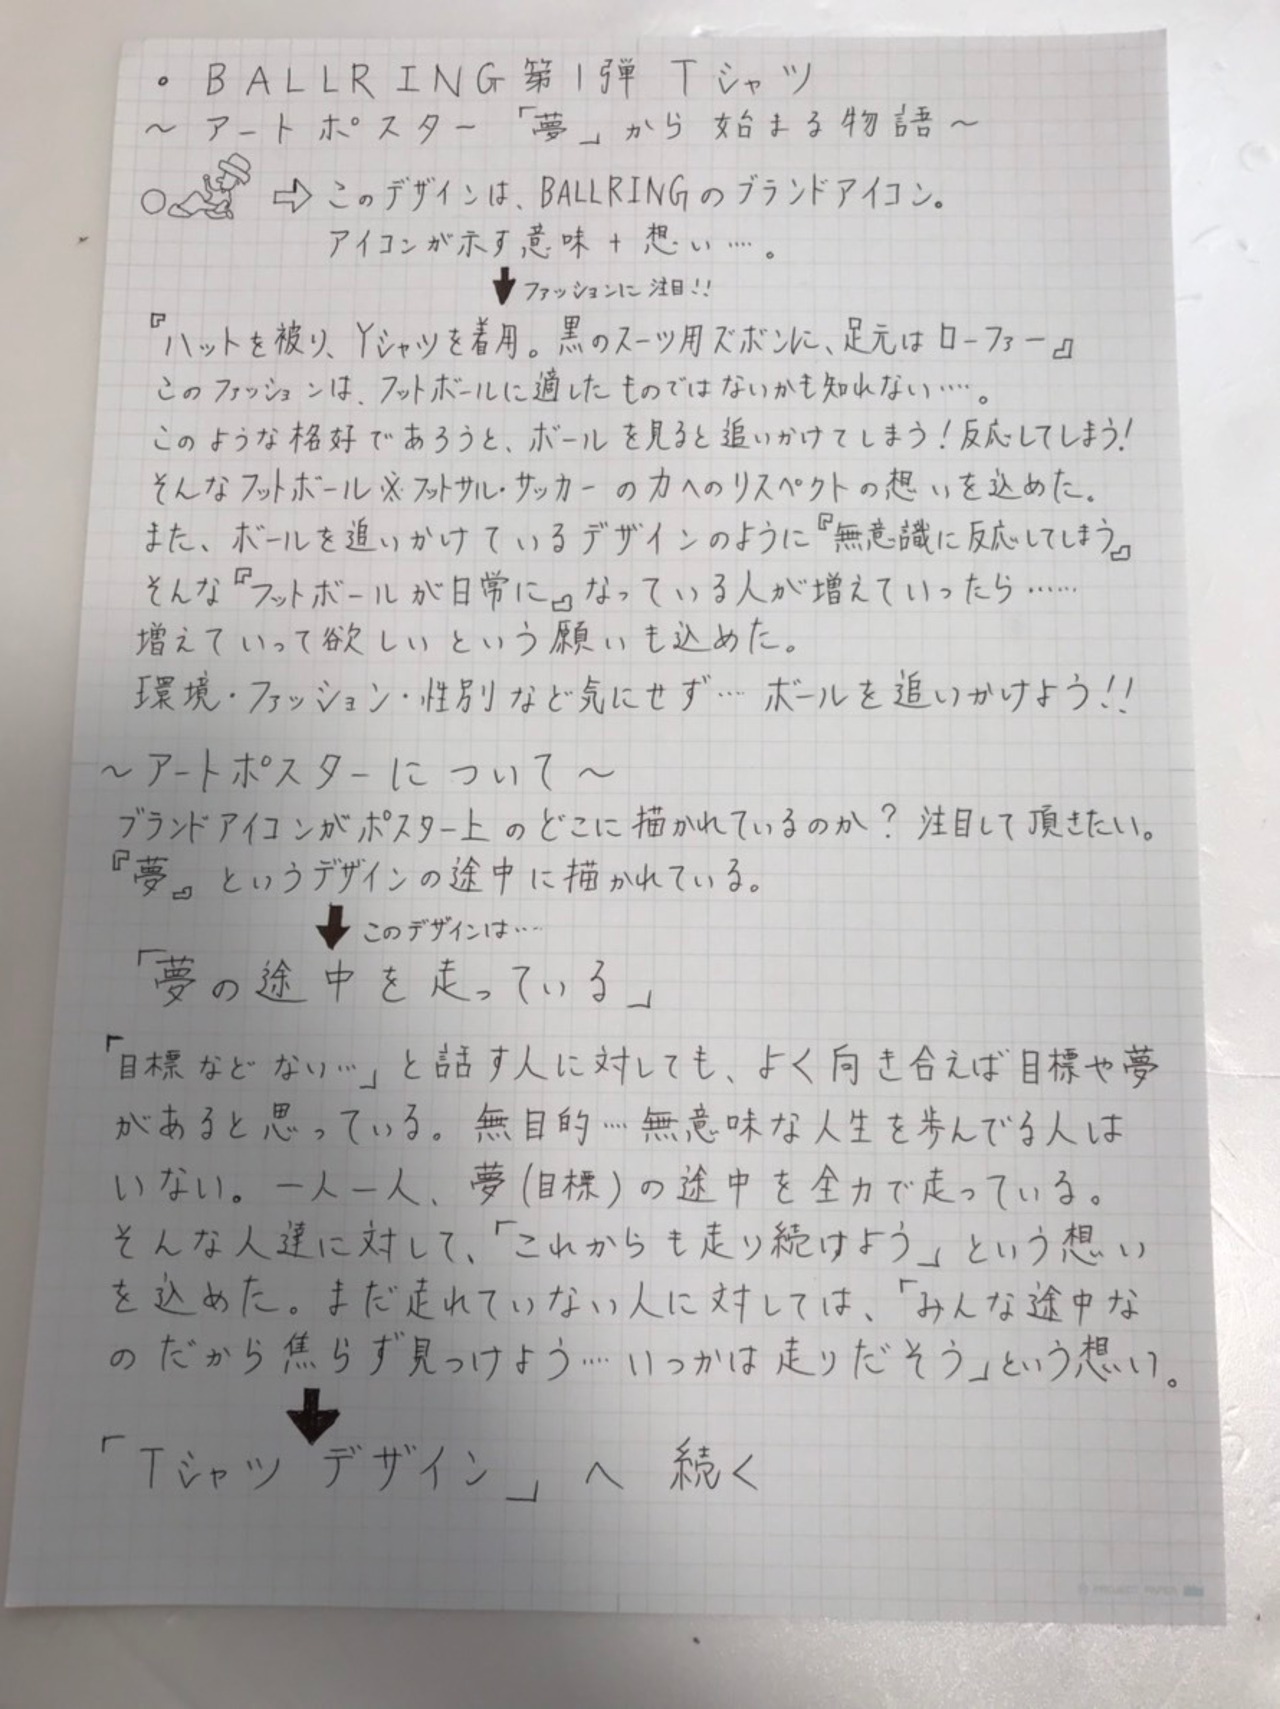 ・BALLRING第1弾 Tシャツ
～アートポスター「夢」から始まる物語～
⇨このデザインは、BALLRINGのブランドアイコン。
アイコンが示す意味＋想い…。
⬇ファッションに注目!!
『ハットを被り、Yシャツを着用。黒のスーツ用ズボンに、足元はローファー』
このファッションは、フットボールに適したものではないかも知れない…。
このような格好であろうと、ボールを見ると追いかけてしまう！反応してしまう！
そんなフットボール※フットサル・サッカーの力へのリスペクトの想いを込めた。
また、ボールを追いかけているデザインのように『無意識に反応してしまう』
そんな『フットボールが日常に』なっている人が増えていったら……
増えていって欲しいという願いも込めた。
環境・ファッション・性別など気にせず…ボールを追いかけよう!!
～アートポスターについて～
ブランドアイコンがポスター上のどこに描かれているのか？注目して頂きたい。
『夢』というデザインの途中に描かれている。
⬇このデザインは…
「夢の途中を走っている」
「目標などない…」と話す人に対しても、よく向き合えば目標や夢
があると思っている。無目的…無意味な人生を歩んでる人は
いない。一人一人、夢(目標)の途中を全力で走っている。
そんな人達に対して、「これからも走り続けよう」という想い
を込めた。まだ走れていない人に対しては、「みんな途中な
のだから焦らず見つけよう…いつかは走りだそう」という想い。
⬇
「Tシャツ デザイン」へ 続く
PROJECT PAPER